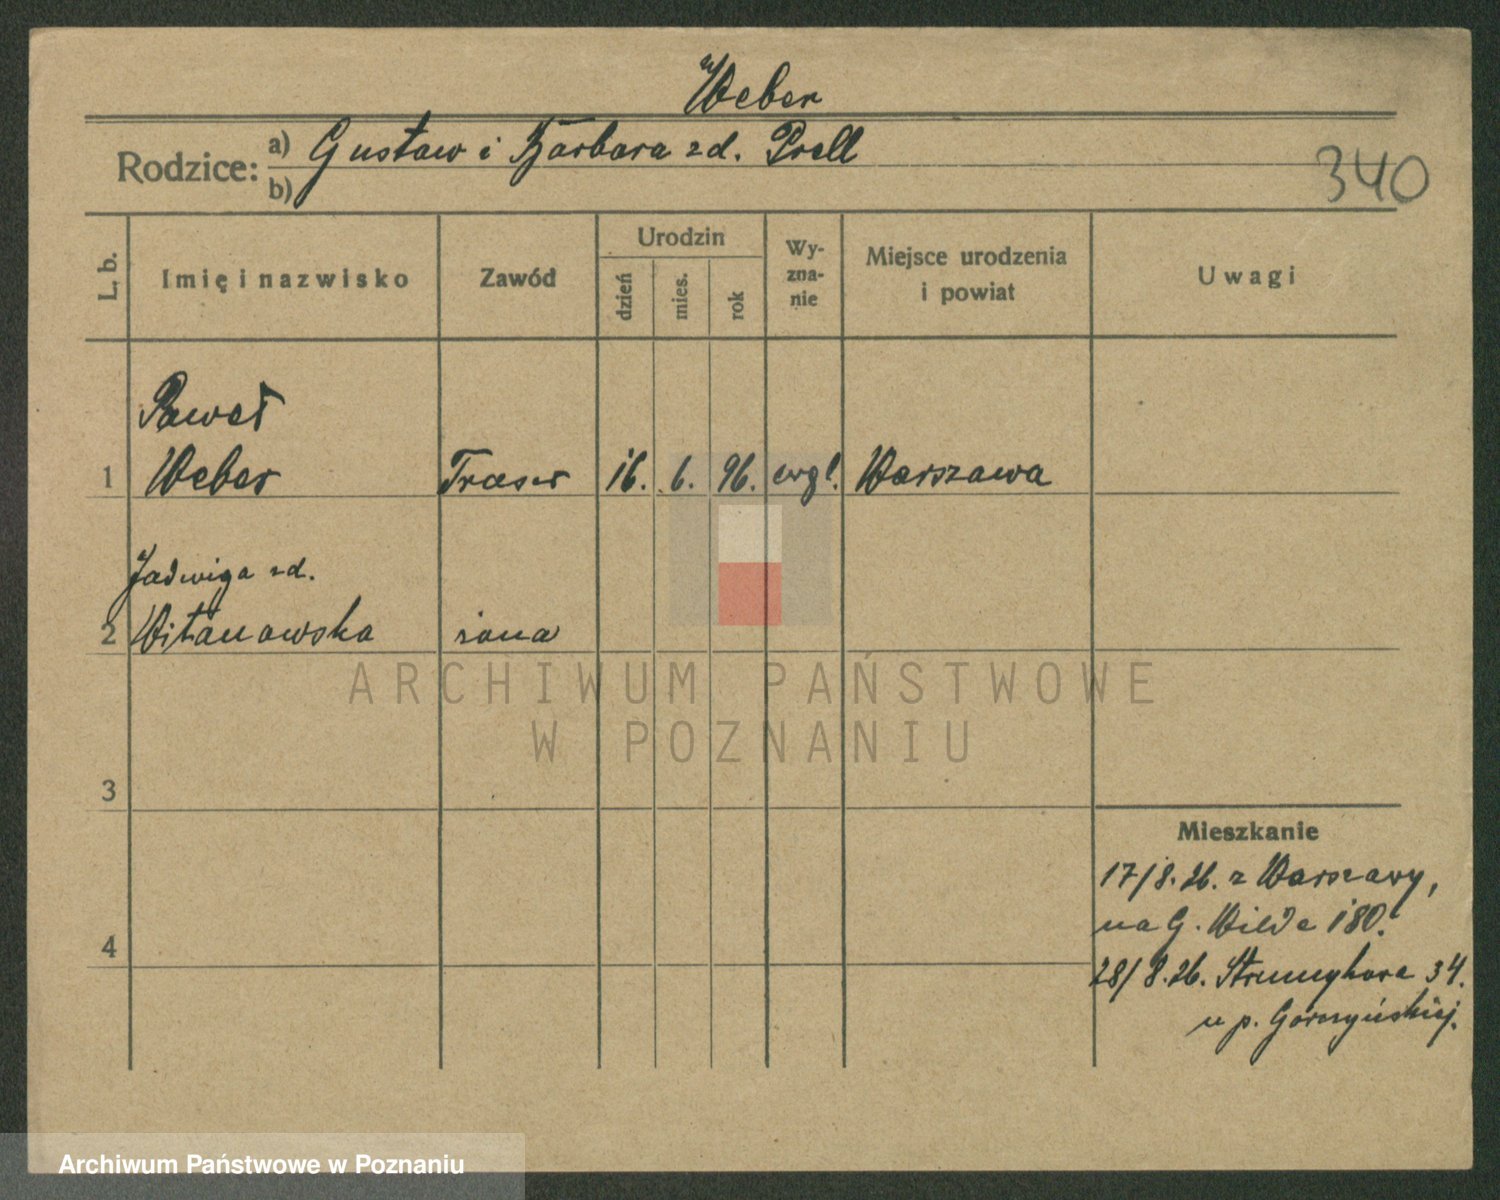 Weber
Rodzice: a) Gustaw i Barbara zd. Prell
b)
340
L. b. Imię i nazwisko Zawód Urodzin dzień mies. rok Wy-zna-nie Miejsce urodzenia i powiat Uwagi
Paweł
1 Weber 16. 6. 96. ewgl. Warszawa
Jadwiga zd.
2 Witanowska żona
3
4
Mieszkanie
17/8.26. z Warszawy,
na G. Wilda 180.
28/8.26. Strumykowa 34.
u p. Gorczyńskiej.
ARCHIWUM PAŃSTWOWE
W POZNANIU
Archiwum Państwowe w Poznaniu